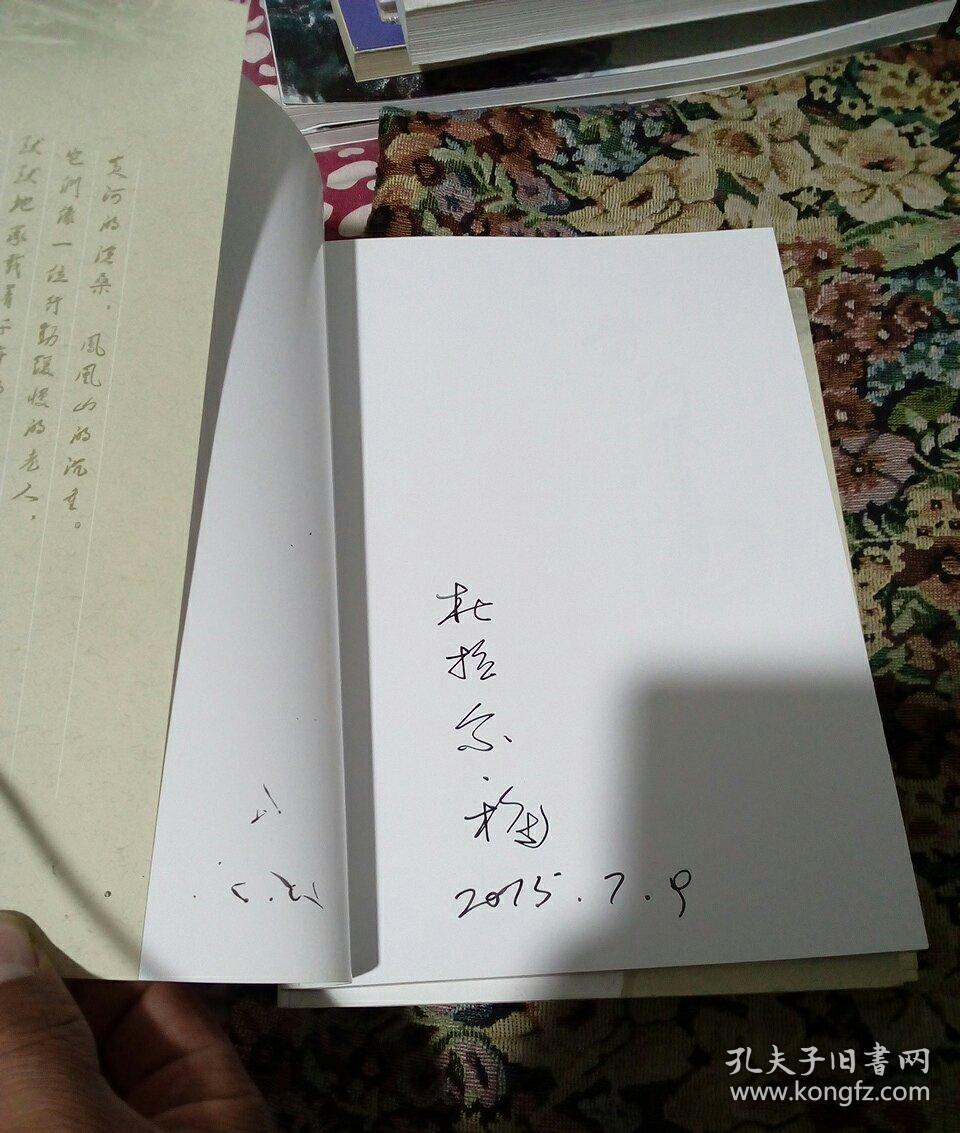 黄河的沧桑，凤凰山的沉重。
它们像一位辛勤缓慢的老人，
默默地承载着
杜
拉
尔
·
梅
2015.7.9
孔夫子旧書网
www.kongfz.com